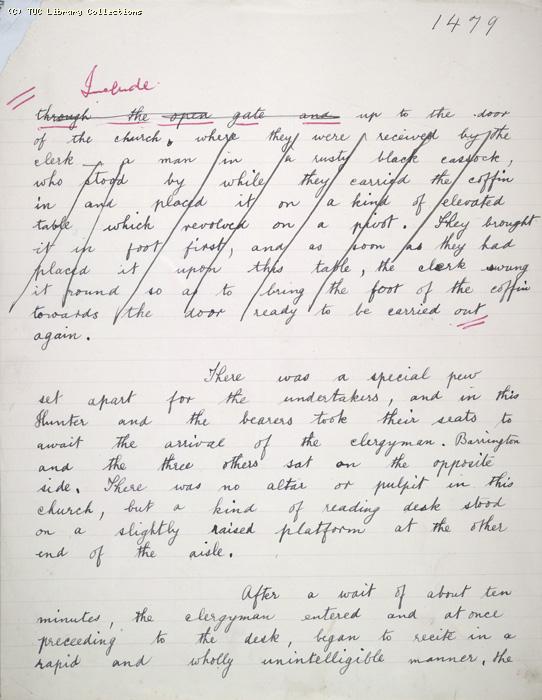 (C) TUC Library Collections
1479
Include
through the open gate and up to the door
of the church, where they were received by the
clerk - a man in a rusty black cassock,
who stood by while they carried the coffin
in and placed it on a kind of elevated
table which revolved on a pivot. They brought
it in foot first, and as soon as they had
placed it upon this table, the clerk swung
it round so as to bring the foot of the coffin
towards the door ready to be carried out
again.
There was a special pew
set apart for the undertakers, and in this
Hunter and the bearers took their seats to
await the arrival of the clergyman. Barrington
and the three others sat on the opposite
side. There was no altar or pulpit in this
church, but a kind of reading desk stood
on a slightly raised platform at the other
end of the aisle.
After a wait of about ten
minutes, the clergyman entered and at once
preceeding to the desk, began to recite in a
rapid and wholly unintelligible manner, the